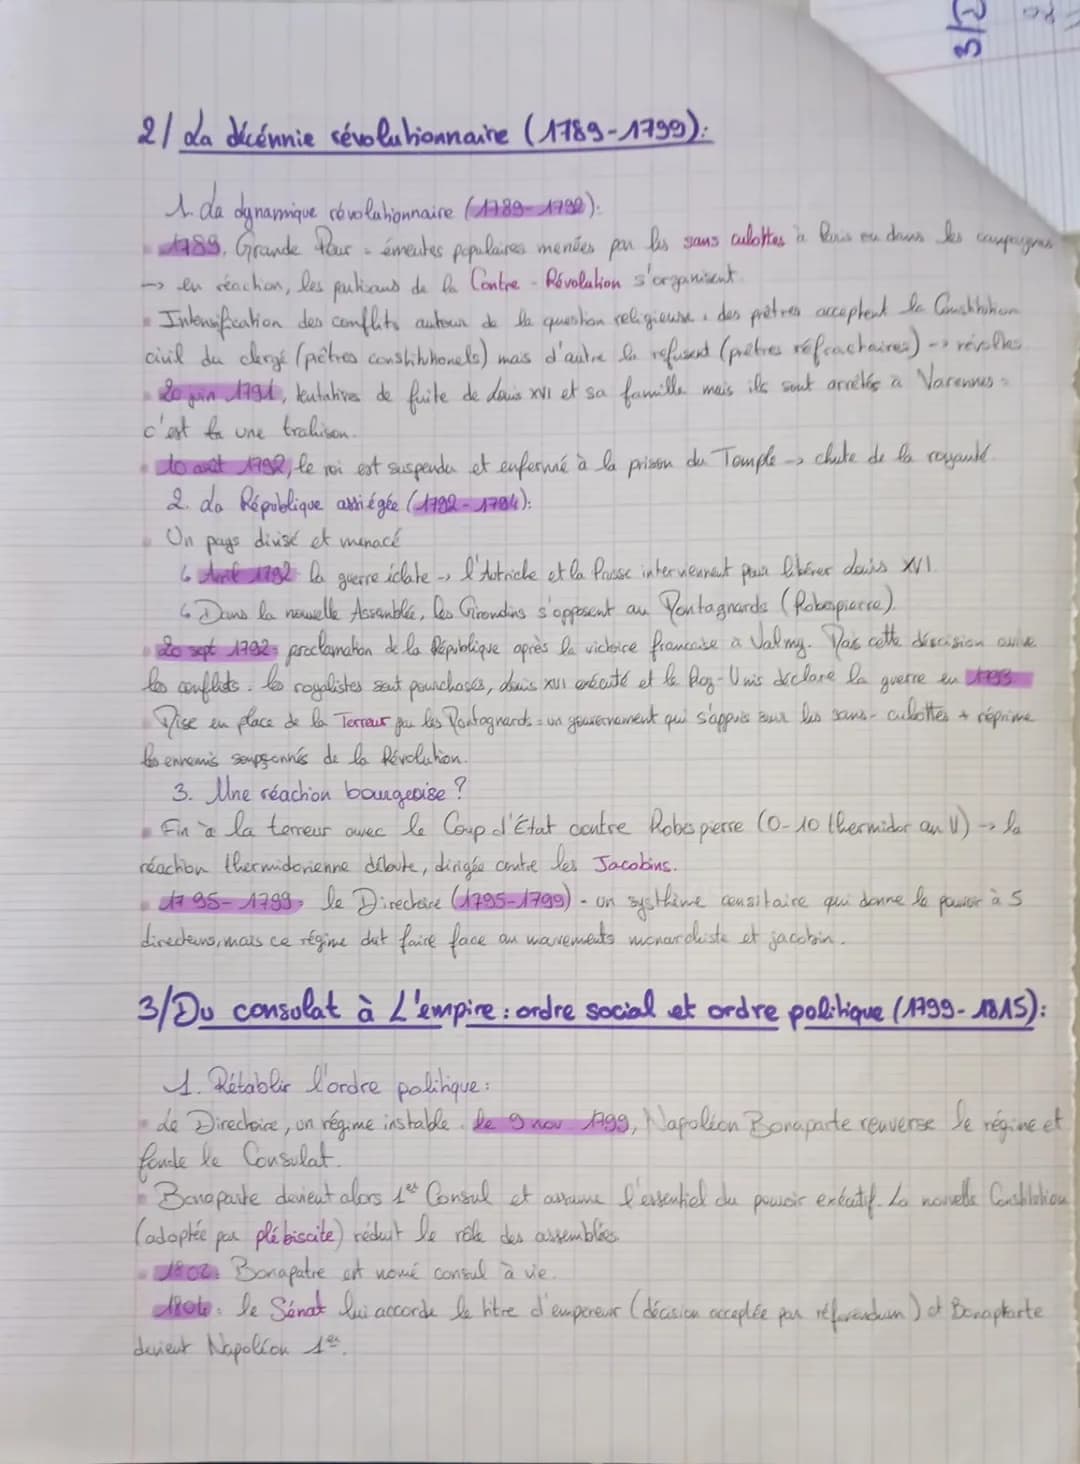 3/2
2/ La décénnie révolutionnaire (1789-1799):
1. La dynamique révolutionnaire (1789-1792):
1789, Grande Peur = émeutes populaires menées par les sans culottes à Paris ou dans les campagnes
-> en réaction, les partisans de la Contre-Révolution s'organisent.
Intensification des conflits autour de la question religieuse : des prêtres acceptent la Constitution
civil du clergé (prêtres constitutionels) mais d'autre la refusent (prêtres réfractaires) -> révoltes
20 juin 1791, tentatives de fuite de Louis XVI et sa famille mais ils sont arrêtés à Varennes =
c'est une trahison.
10 août 1792, le roi est suspendu et enfermé à la prison du Temple -> chute de la royauté.
2. La République assiégée (1792-1794):
Un pays divisé et menacé
Avril 1792 la guerre éclate -> l'Autriche et la Prusse interviennent pour libérer Louis XVI.
Dans la nouvelle Assemblée, les Girondins s'opposent au Montagnards (Robespierre).
20 sept 1792: proclamation de la République après la victoire francaise à Valmy. Mais cette déscision avive
les conflits : les royalistes sont pourchassés, Louis XVI exécuté et le Roy-Unis déclare la guerre en 1793
Mise en place de la Terreur par les Montagnards = un gouvernement qui s'appuis sur les sans-culottes + réprime
les ennemis soupçonnés de la Révolution.
3. Une réaction bourgeoise ?
Fin à la terreur avec le Coup d'État contre Robespierre (0-10 thermidor an V) -> la
réaction thermidorienne débute, dirigée contre les Jacobins.
1795-1799, le Directoire (1795-1799) - un système censitaire qui donne le pouvoir à 5
directeurs, mais ce régime dut faire face au mouvements monarchiste et jacobin.
3/Du consulat à L'empire : ordre social et ordre politique (1799-1815):
1. Rétablir l'ordre politique:
Le Directoire, un régime instable. Le 9 nov 1799, Napoléon Bonaparte renverse le régime et
fonde le Consulat.
Bonaparte devient alors 1er Consul et assume l'essentiel du pouvoir exécutif. La nouvelle Constitution
(adoptée par plébiscite) réduit le rôle des assemblées
1802: Bonapatre est nomé consul à vie.
1804: le Sénat lui accorde le titre d'empereur (décision acceptée par référendum) et Bonaparte
devient Napoléon 1er.